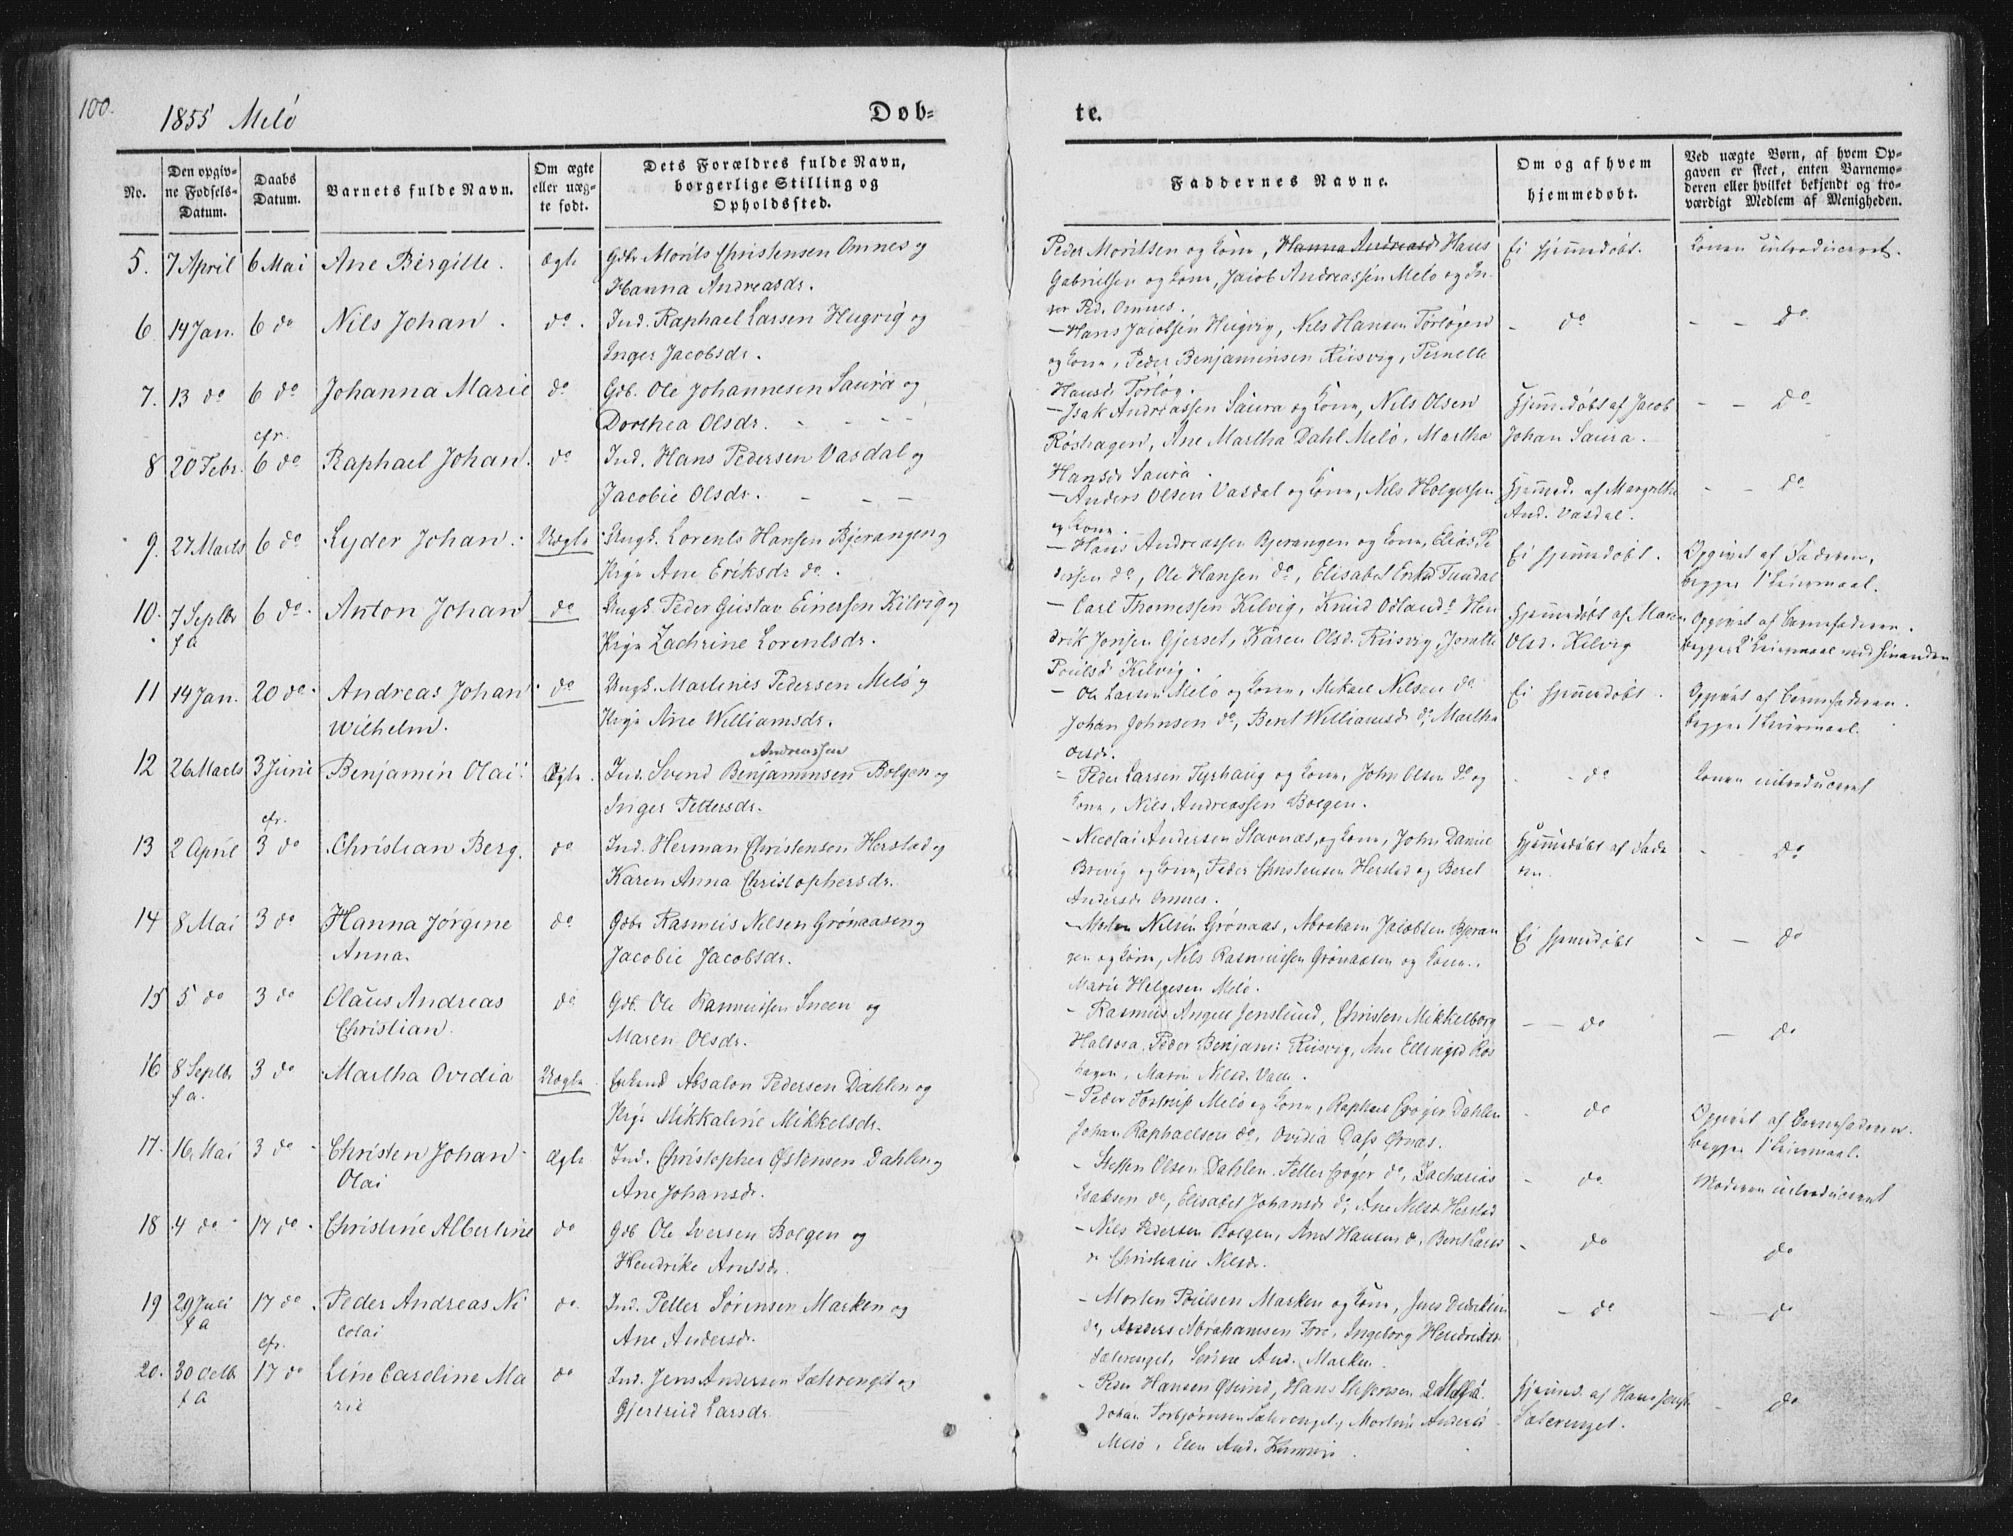 100.
1855 Melö
Døb-
te.
No.
Den opgiv-
ne Fødsels-
Datum.
Daabs
Datum.
Barnets fulde Navn.
Om ægte
eller uæg-
te født.
Dets Forældres fulde Navn,
borgerlige Stilling og
Opholdssted.
Faddernes Navne.
Om og af hvem
hjemmedøbt.
Ved uægte Børn, af hvem Op-
gaven er skeet, enten Barnemo-
deren eller hvilket bekjendt og tro-
værdigt Medlem af Menigheden.
5. 7 April 6 Mai Ane Birgitte. Ægte Gdbr Morits Christensen Omnes og
Hanna Andreasdr.
Peder Moritsen og Kone, Hanna Andreasdr Hans
Gabrielsen og Kone, Jacob Andreassen Melö og
Ped. Omnes.
Ei hjemmedøbt.
Konen introduceret.
6 14 Jan. 6 do Nils Johan. do. Ind. Raphael Larsen Hugvig og
Inger Jacobsdr.
- Hans Jacobsen Hugvig, Nils Hansen
og Kone, Peder Benjaminsen Riisvig, Pernelle
Hansd.
- do
- - Do
7. 13 do 6 do Johanna Marie do Gdb. Ole Johannesen Saura og
Dorthea Olsdr. - - -
- Isak Andreassen Saura og Kone, Nils Olsen
Röshagen, Ane Martha Dahl Melö, Martha
Hansdr Saura.
Hjemmedøbt af Jacob
Johan Saura.
- - Do
cfr.
8 20 Febr. 6 do Raphael Johan. do Ind. Hans Pedersen Vasdal og
Jacobie Olsdr. - - -
- Anders Olsen Vasdal og Kone, Nils Holgersen
og Kone.
Hjemmed. af Margrethe
And. Vasdal.
- - Do
9. 27 Marts 6 do Lyder Johan. Uægte Ungk. Lorents Hansen Bjerangen og
Pige Ane Eriksdr do.
- Hans Andreassen Bjerangen og Kone, Elias Pe
dersen do, Ole Hansen do, Elisabet Tundal
Ei hjemmedøbt.
Opgivet af Faderen,
begges 1ste Leiermaal.
10. 7 Septbr 6 do. Anton Johan do Ungk. Peder Gustav Einersen Kilvig og
f a
Pige Zachrine Lorentsdr.
- Carl Thomessen Kilvig, Knud do Hen
drik Jonsen Gjerset, Karen Olsd. Riisvig,
Poulsd Kilvig.
Hjemmedøbt af Maren
Olsd. Kilvig
Opgivet af Barnefaderen.
begges 2 Leiermaal med hinanden
11 14 Jan. 20 do. Andreas Johan do Ungk. Martines Pedersen Melö og
Wilhelm.
Pige Ane Williamsdr.
- Ole Larsen Melö og Kone, Mikael Nilsen do
Johan Johnsen do, Berit Williamsdr do Martha
Olsdr.
Ei hjemmedøbt.
Opgivet af Barnefaderen.
begges 1 Leiermaal.
12 26 Marts 3 Juni Benjamin Olai. Ægte. Ind. Svend Benjaminsen Bolgen og
Andreassen
Inger Pettersdr.
- Peder Larsen Fyrhaug og Kone, John Olsen do og
Kone, Nils Andreassen Bolgen.
- - do
Konen introduceret
cfr.
13 2 April 3 do Christian Berg. do Ind. Herman Christensen Herstad og
Karen Anna Christophersdr.
- Nicolai Andersen Stavnæs, og Kone, John Danie
Brevig og Kone, Peder Christensen Herstad og Beret
Andersdr Omnes.
Hjemmedøbt af Fade
ren.
- - Do
14 8 Mai 3 do Hanna Jörgine do Gdbr Rasmus Nilsen Grönaasen og
Anna.
Jacobie Jacobsdr.
- Morten Nilsen Grönaas, Abraham Jacobsen Bjeran
gen og Kone, Nils Rasmussen Grönaasen og Kone.
Marie Helgesen Melö.
Ei hjemmedøbt
- - do
15 5 do 3 do Olaus Andreas do Gdb. Ole Rasmussen Sneen og
Christian.
Maren Olsdr.
- Rasmus Angell Jenslund, Christen Mikkelborg
Halsosa. Peder Benjam: Riisvig, Ane Rös
hagen, Maren Nilsd.
- - do
- do
16 8 Septbr 3 do Martha Ovidia Uægte Enkemd Absalon Pedersen Dahlen og
f a.
Pige Mikkaline Mikkelsdr.
- Peder Melö og Kone, Raphael Dahlen
Johan Raphaelsen do, Ovidia Dass
- do
Opgivet af Barnefaderen.
begges 1ste Leiermaal.
17. 16 Mai 3 do Christen Johan Ægte Ind. Christopher Östensen Dahlen og
Olai
Ane Johansdr.
- Steffen Olsen Dahlen. Petter do, Zacharias
Isaksen do, Elisabet Johansdr do, Ane Nilsdr Herstad
- do
Moderen introduceret
18 4 do 17 do. Christine Albertine do Gdb Ole Iversen Bolgen og
Hendrike Arntsdr.
- Nils Pedersen Bolgen, Arnt Hansen do,
Christiane Nilsdr.
- do
do
19 29 Juli 17 do. Peder Andreas Ni do. Ind. Petter Sörensen Marken og
f a
colai
Ane Andersdr.
- Morten Poulsen Marken og Kone, Jens
do, Anders Abrahamsen Fore, Ingeborg Hendriksdr
Sæterenget, And. Marken.
- do
- do
cfr.
20. 30 Octb 17 do Line Caroline Ma do Ind. Jens Andersen Sæterenget og
f a
rie
Gjertrud Larsdr.
- Peder Hansen, Hans
Johan Torbjörnsen Sæterenget, Andersd
Melö, Elen And.
Hjemmd. af Hans
Sæterenget.
- do